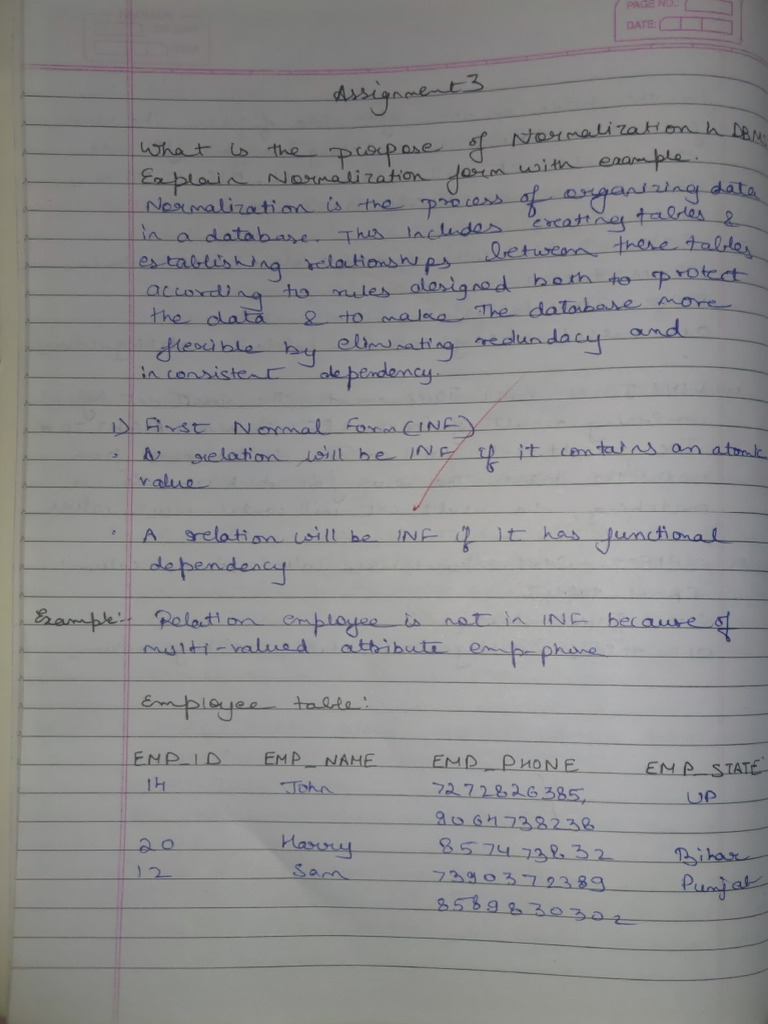 PAGE NO.:
DATE:
Assignment 3
What is the purpose of Normalization in DBMS
Explain Normalization form with example.
Normalization is the process of organizing data
in a database. This includes creating tables &
establishing relationships between these tables
according to rules designed both to protect
the data & to make The database more
flexible by eliminating redundacy and
inconsistent dependency.
1) First Normal Form (1NF)
. A relation will be 1NF if it contains an atomic
value
. A relation will be 1NF if it has functional
dependency
Example:- Relation employee is not in 1NF because of
multi-valued attribute emp-phone
Employee table:
EMP_ID EMP_NAME EMP_PHONE EMP_STATE
14 John 7272826385, UP
9064738238
20 Harry 8574738 32 Bihar
12 Sam 7390372389 Punjab
8589830302